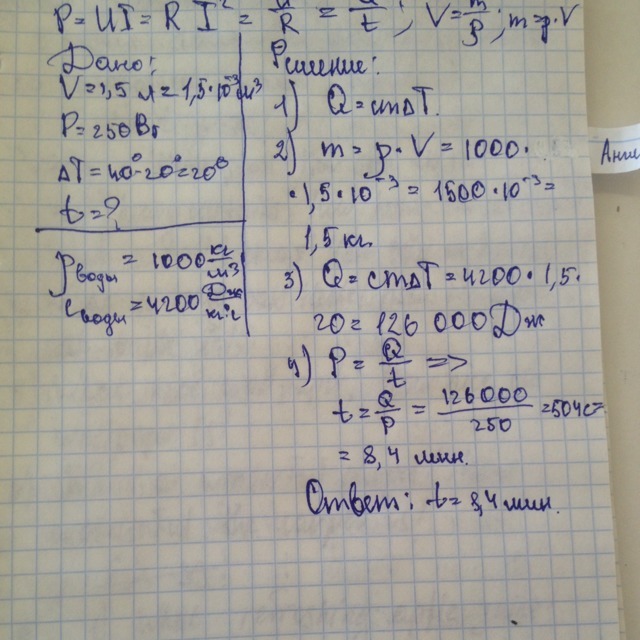 P = UI = R I² = U²/R = Q/t; V = m/ρ; m = ρ·V
Дано:
V = 1,5 л = 1,5·10⁻³ м³
P = 250 Вт
ΔT = 40° - 20° = 20°
t = ?
ρводы = 1000 кг/м³
cводы = 4200 Дж/кг·г
Решение:
1) Q = cmΔT.
2) m = ρ·V = 1000·
·1,5·10⁻³ = 1500·10⁻³ =
1,5 кг.
3) Q = cmΔT = 4200·1,5·
20 = 126 000 Дж
4) P = Q/t =>
t = Q/P = 126000/250 = 504 с =
= 8,4 мин.
Ответ: t = 8,4 мин.